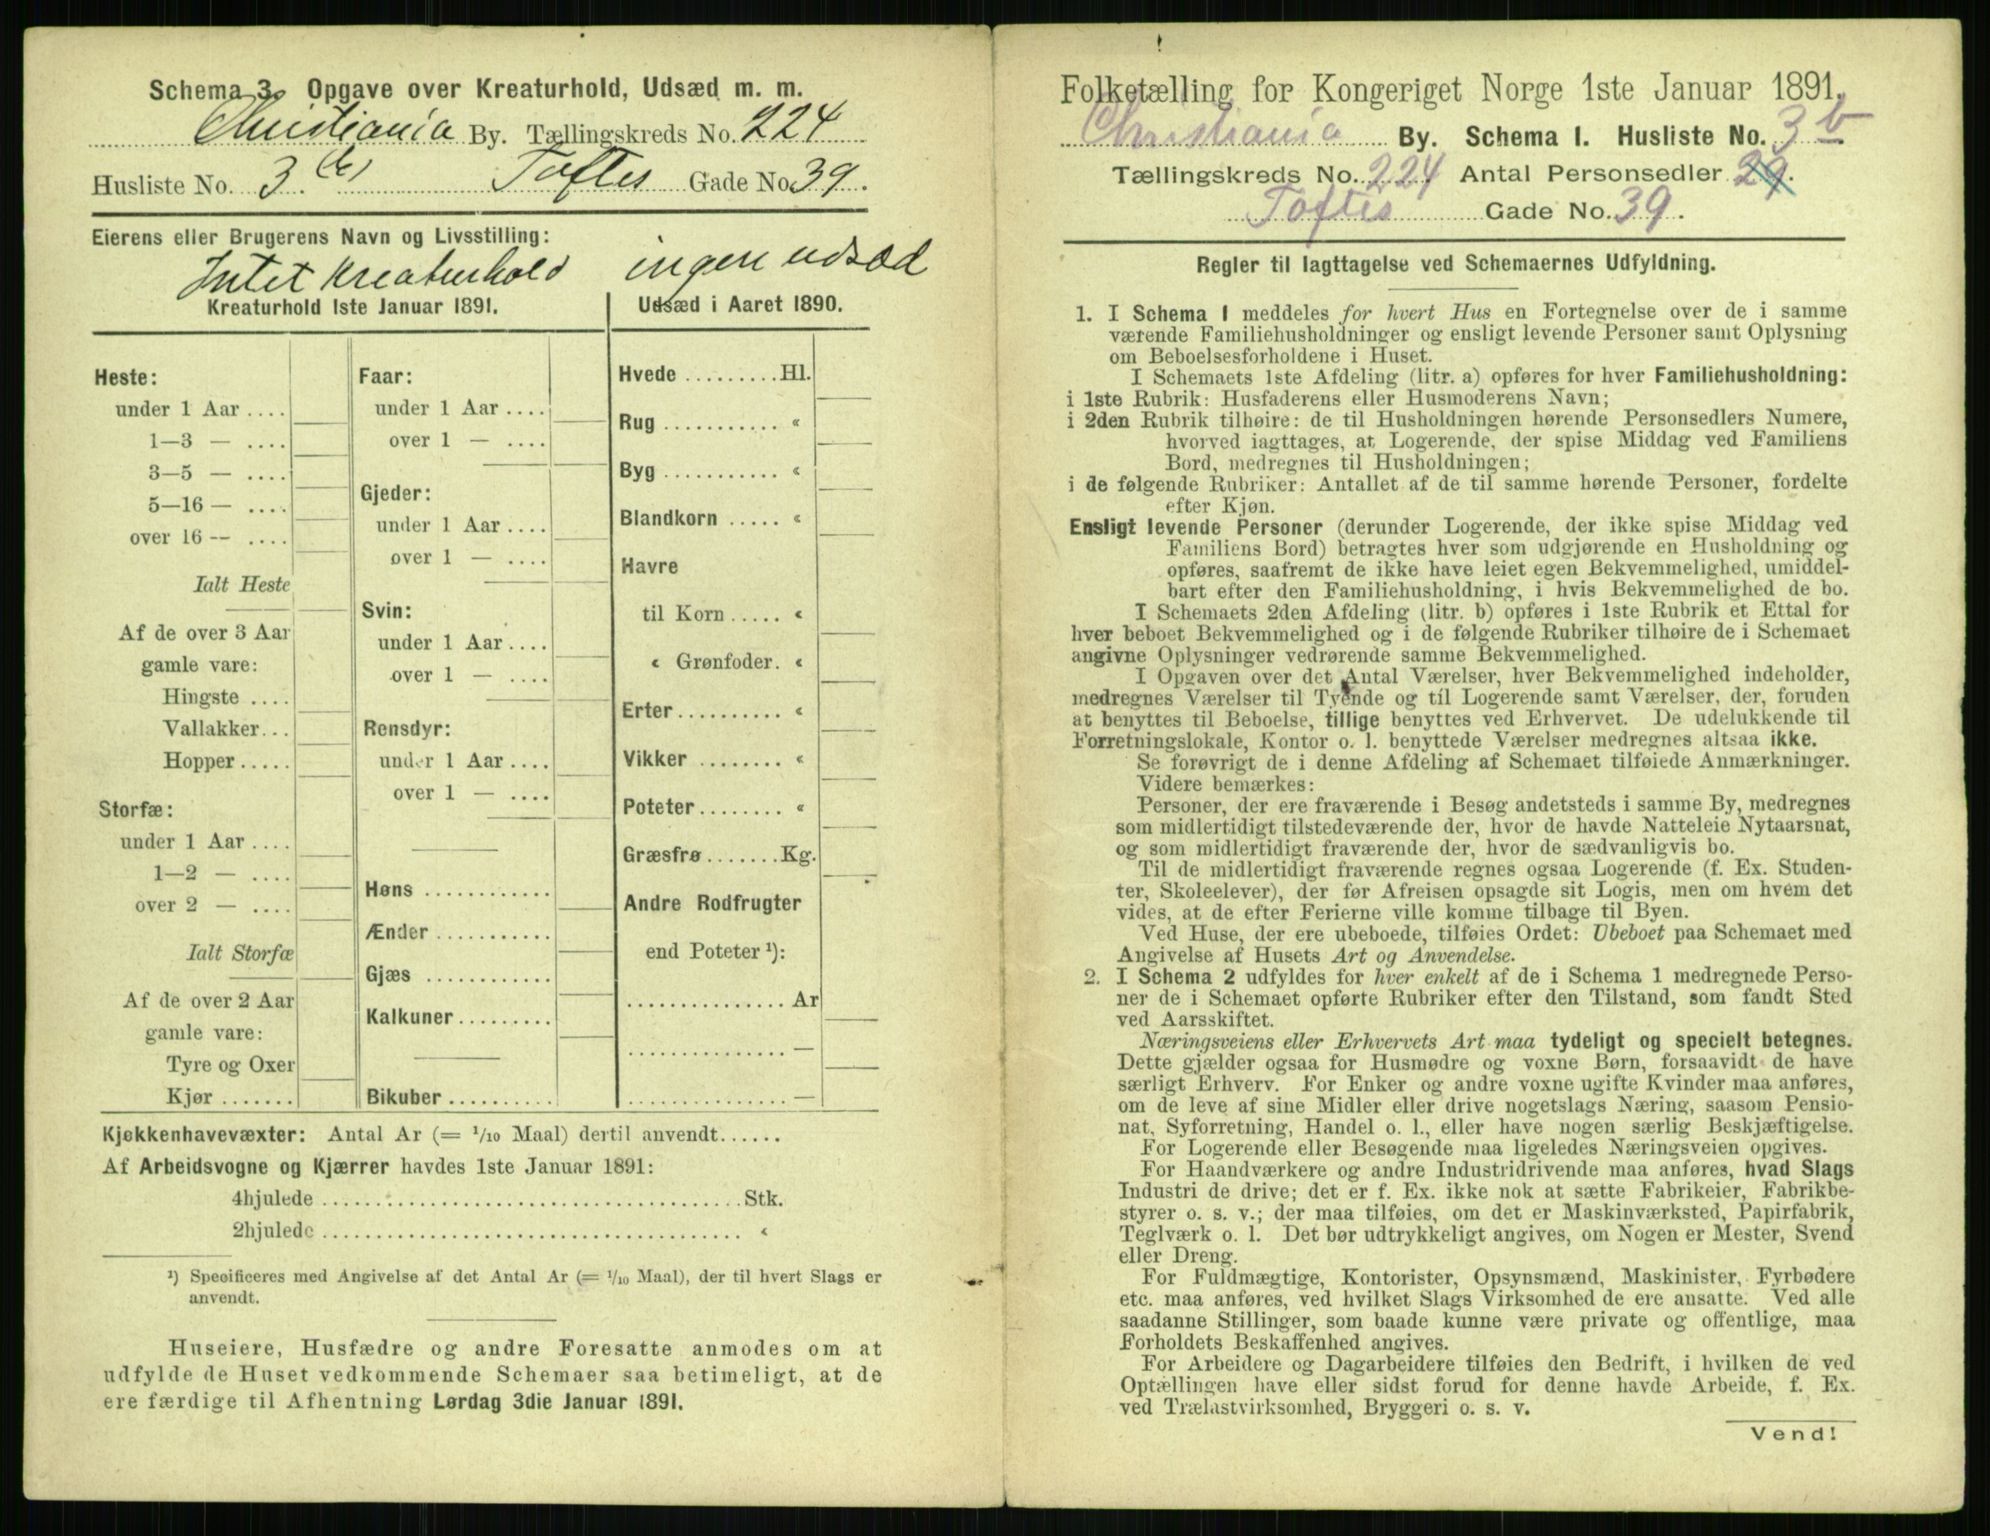 Schema 3. Opgave over Kreaturhold, Udsæd m. m.
Christiania By. Tællingskreds No. 224
Husliste No. 3 Toftes Gade No. 39.
Eierens eller Brugerens Navn og Livsstilling:
Intet Kreaturhold ingen udsæd
Kreaturhold 1ste Januar 1891.
Heste:
under 1 Aar ....
1—3 — ....
3—5 — ....
5—16 — ....
over 16 — ....
Ialt Heste
Af de over 3 Aar
gamle vare:
Hingste ....
Vallakker...
Hopper.....
Storfæ:
under 1 Aar ....
1—2 — ....
over 2 — ....
Ialt Storfæ
Af de over 2 Aar
gamle vare:
Tyre og Oxer
Kjør .......
Faar:
under 1 Aar ....
over 1 — ....
Gjeder:
under 1 Aar ....
over 1 — ....
Svin:
under 1 Aar ....
over 1 — ....
Rensdyr:
under 1 Aar ....
over 1 — ....
Høns ............
Ænder ...........
Gjæs ............
Kalkuner.........
Bikuber ..........
Udsæd i Aaret 1890.
Hvede .........Hl.
Rug ........... «
Byg ........... «
Blandkorn ..... «
Havre
til Korn..... «
« Grønfoder. «
Erter.......... «
Vikker ........ «
Poteter........ «
Græsfrø .......Kg.
Andre Rodfrugter
end Poteter ¹):
............... Ar
............... —
............... —
Kjøkkenhavevæxter: Antal Ar (= 1/10 Maal) dertil anvendt......
Af Arbeidsvogne og Kjærrer havdes 1ste Januar 1891:
4hjulede ........................................Stk.
2hjulede ........................................ «
¹) Specificeres med Angivelse af det Antal Ar (= 1/10 Maal), der til hvert Slags er
anvendt.
Huseiere, Husfædre og andre Foresatte anmodes om at
udfylde de Huset vedkommende Schemaer saa betimeligt, at de
ere færdige til Afhentning Lørdag 3die Januar 1891.
Folketælling for Kongeriget Norge 1ste Januar 1891.
Christiania By. Schema 1. Husliste No. 3 b
Tællingskreds No. 224 Antal Personsedler 29.
Toftes Gade No. 39.
Regler til Iagttagelse ved Schemaernes Udfyldning.
1. I Schema 1 meddeles for hvert Hus en Fortegnelse over de i samme
værende Familiehusholdninger og ensligt levende Personer samt Oplysning
om Beboelsesforholdene i Huset.
I Schemaets 1ste Afdeling (litr. a) opføres for hver Familiehusholdning:
i 1ste Rubrik: Husfaderens eller Husmoderens Navn;
i 2den Rubrik tilhøire: de til Husholdningen hørende Personsedlers Numere,
hvorved iagttages, at Logerende, der spise Middag ved Familiens
Bord, medregnes til Husholdningen;
i de følgende Rubriker: Antallet af de til samme hørende Personer, fordelte
efter Kjøn.
Ensligt levende Personer (derunder Logerende, der ikke spise Middag ved
Familiens Bord) betragtes hver som udgjørende en Husholdning og
opføres, saafremt de ikke have leiet egen Bekvemmelighed, umiddel-
bart efter den Familiehusholdning, i hvis Bekvemmelighed de bo.
I Schemaets 2den Afdeling (litr. b) opføres i 1ste Rubrik et Ettal for
hver beboet Bekvemmelighed og i de følgende Rubriker tilhøire de i Schemaet
angivne Oplysninger vedrørende samme Bekvemmelighed.
I Opgaven over det Antal Værelser, hver Bekvemmelighed indeholder,
medregnes Værelser til Tyende og til Logerende samt Værelser, der, foruden
at benyttes til Beboelse, tillige benyttes ved Erhvervet. De udelukkende til
Forretningslokale, Kontor o. l. benyttede Værelser medregnes altsaa ikke.
Se forøvrigt de i denne Afdeling af Schemaet tilføiede Anmærkninger.
Videre bemærkes:
Personer, der ere fraværende i Besøg andetsteds i samme By, medregnes
som midlertidigt tilstedeværende der, hvor de havde Natteleie Nytaarsnat,
og som midlertidigt fraværende der, hvor de sædvanligvis bo.
Til de midlertidigt fraværende regnes ogsaa Logerende (f. Ex. Studen-
ter, Skoleelever), der før Afreisen opsagde sit Logis, men om hvem det
vides, at de efter Ferierne ville komme tilbage til Byen.
Ved Huse, der ere ubeboede, tilføies Ordet: Ubeboet paa Schemaet med
Angivelse af Husets Art og Anvendelse.
2. I Schema 2 udfyldes for hver enkelt af de i Schema 1 medregnede Perso-
ner de i Schemaet opførte Rubriker efter den Tilstand, som fandt Sted
ved Aarsskiftet.
Næringsveiens eller Erhvervets Art maa tydeligt og specielt betegnes.
Dette gjælder ogsaa for Husmødre og voxne Børn, forsaavidt de have
særligt Erhverv. For Enker og andre voxne ugifte Kvinder maa anføres,
om de leve af sine Midler eller drive nogetslags Næring, saasom Pensio-
nat, Syforretning, Handel o. l., eller have nogen særlig Beskjæftigelse.
For Logerende eller Besøgende maa ligeledes Næringsveien opgives.
For Haandværkere og andre Industridrivende maa anføres, hvad Slags
Industri de drive; det er f. Ex. ikke nok at sætte Fabrikeier, Fabrikbe-
styrer o. s. v.; der maa tilføies, om det er Maskinværksted, Papirfabrik,
Teglværk o. l. Det bør udtrykkeligt angives, om Nogen er Mester, Svend
eller Dreng.
For Fuldmægtige, Kontorister, Opsynsmænd, Maskinister, Fyrbødere
etc. maa anføres, ved hvilket Slags Virksomhed de ere ansatte. Ved alle
saadanne Stillinger, som baade kunne være private og offentlige, maa
Forholdets Beskaffenhed angives.
For Arbeidere og Dagarbeidere tilføies den Bedrift, i hvilken de ved
Optællingen have eller sidst forud for denne havde Arbeide, f. Ex.
ved Trælastvirksomhed, Bryggeri o. s. v.
Vend!